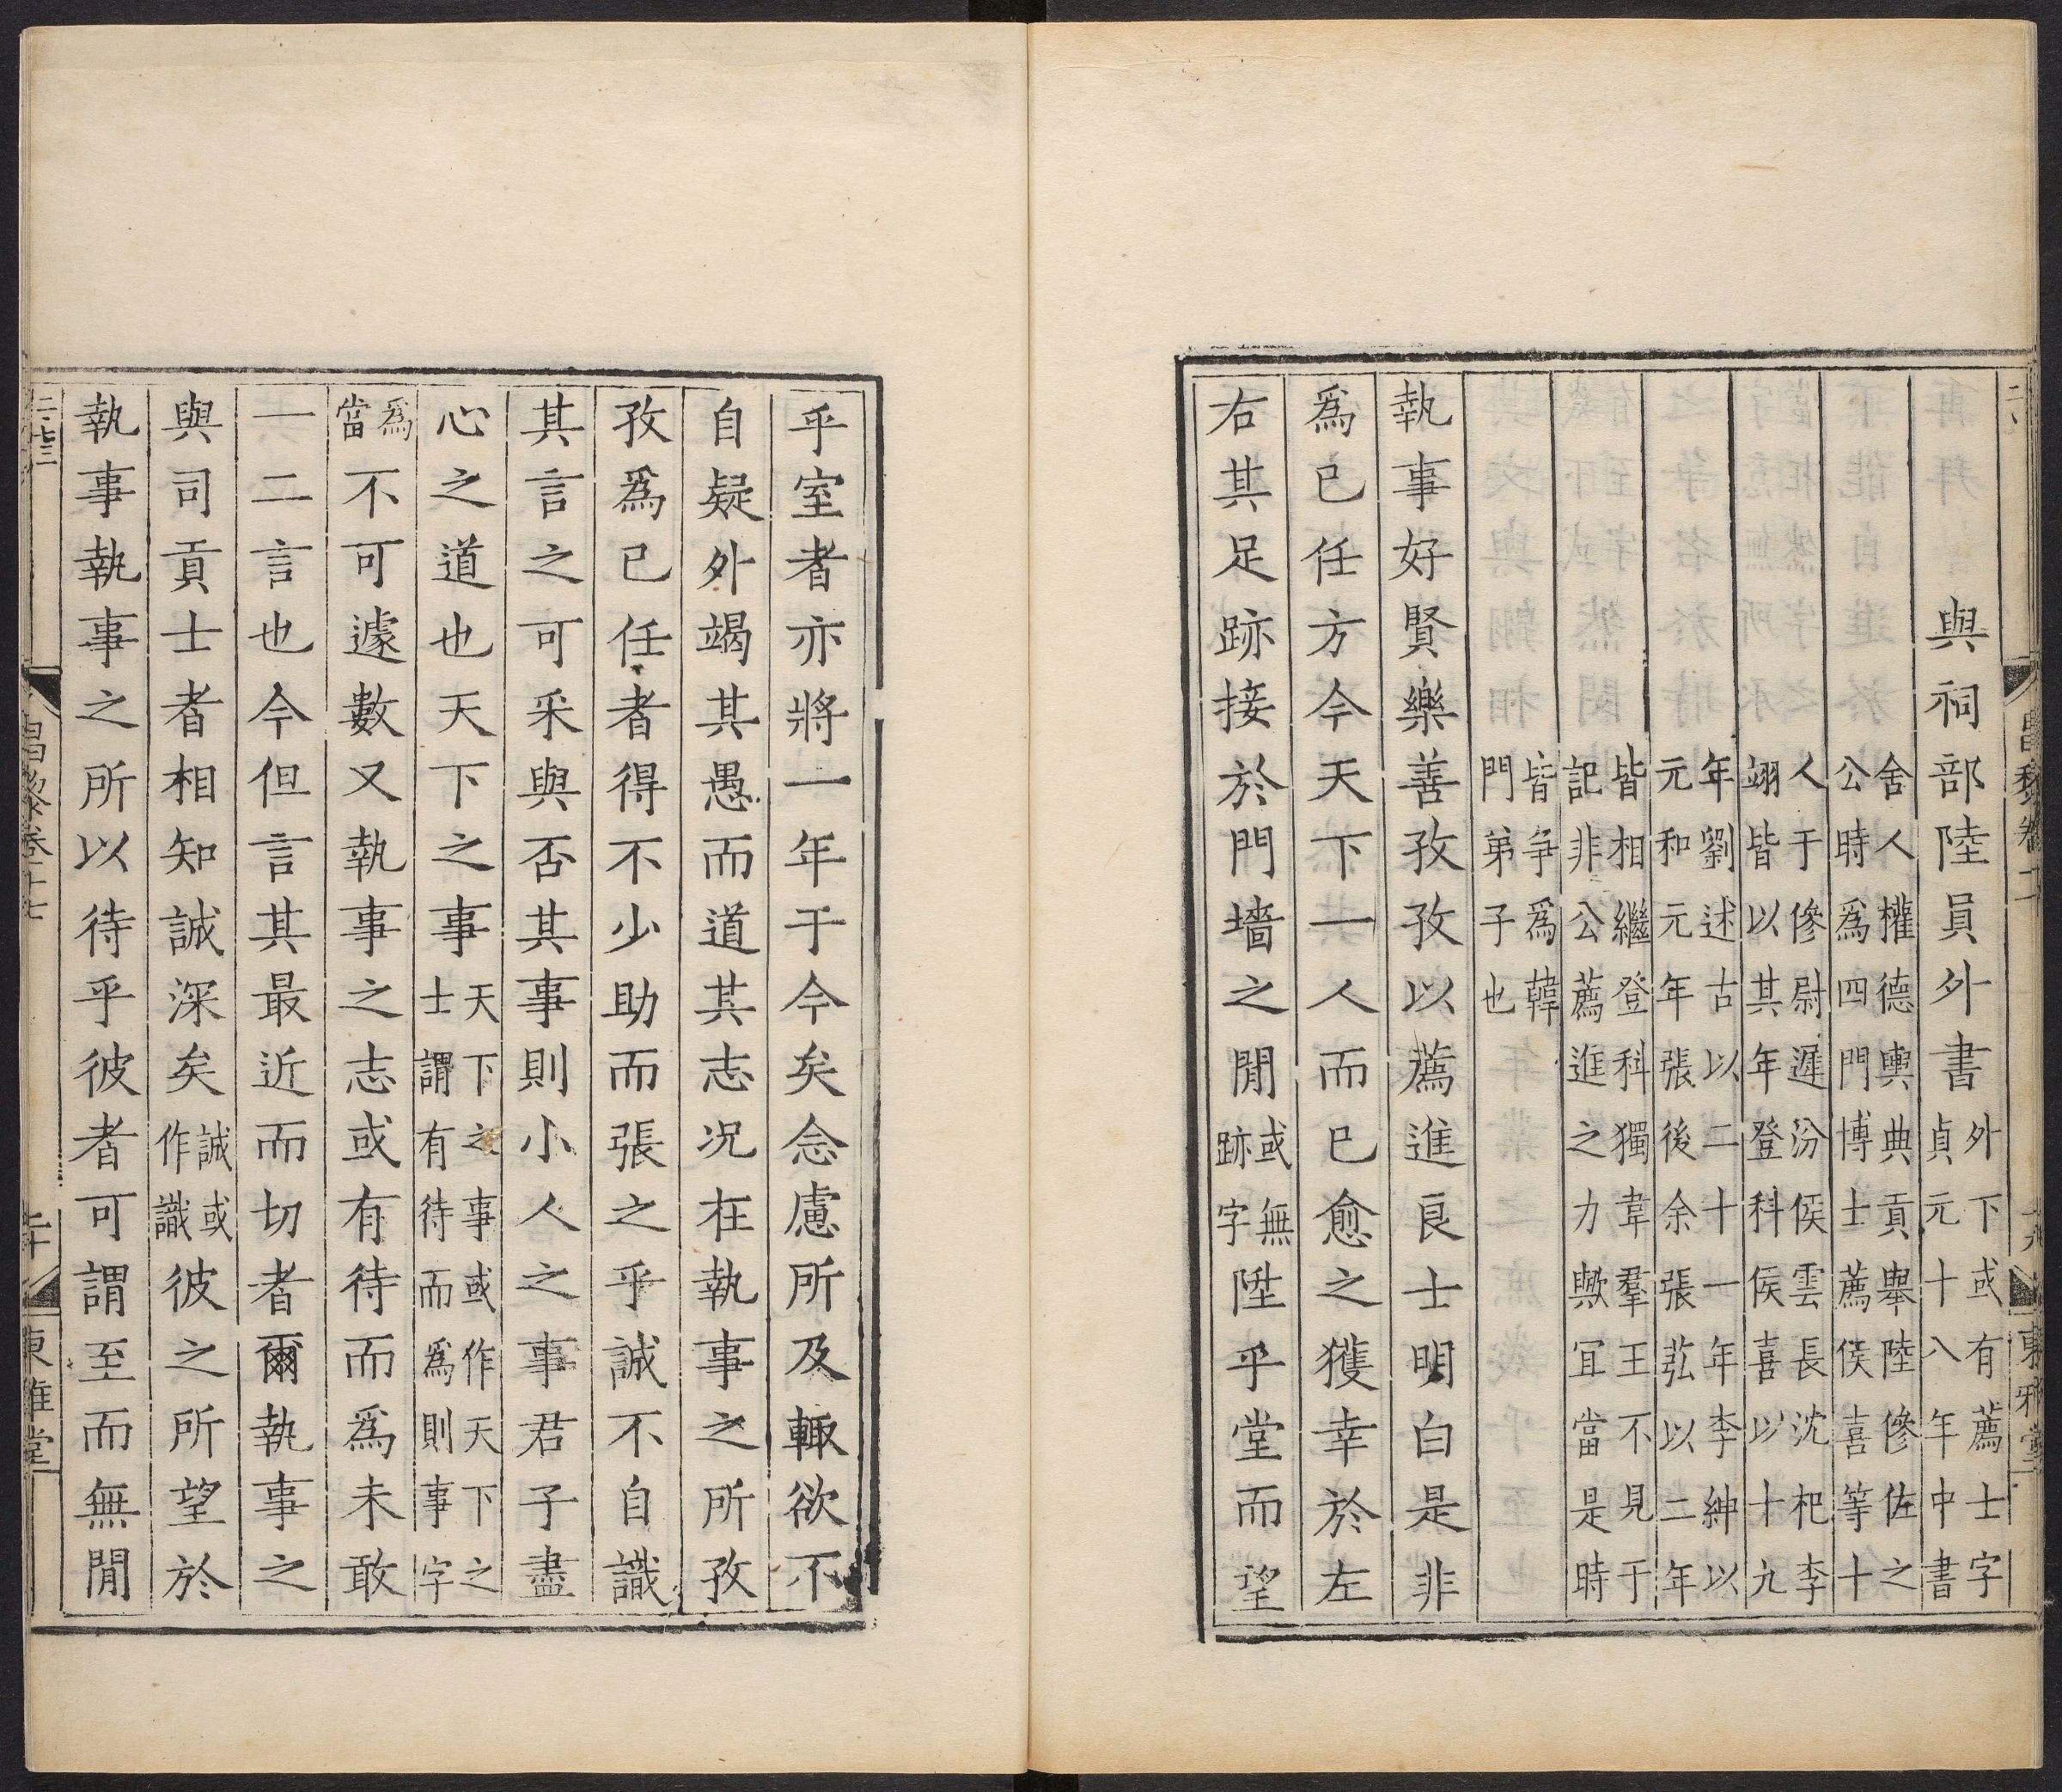 與祠部陸員外書外下或有薦士字貞元十八年中書
舍人權德輿典貢舉陸傪佐之公時爲四門博士薦侯喜等十
人于傪尉遲汾侯雲長沈杞李翊皆以其年登科侯喜以十九
年劉述古以二十一年李紳以元和元年張後余張弘以二年
皆相繼登科獨韋羣王不見于記非公薦進之力歟宜當是時
皆争爲韓門弟子也
執事好賢樂善孜孜以薦進良士明白是非
爲已任方今天下一人而已愈之獲幸於左
右其足跡接於門墻之閒或無跡字陞乎堂而望
乎室者亦將一年于今矣念慮所及輙欲不
自疑外竭其愚而道其志况在執事之所孜
孜爲已任者得不少助而張之乎誠不自識
其言之可采與否其事則小人之事君子盡
心之道也天下之事天下之事或作天下之士謂有待而爲則事字
爲當不可遽數又執事之志或有待而爲未敢
一二言也今但言其最近而切者爾執事之
與司貢士者相知誠深矣誠或作識彼之所望於
執事執事之所以待乎彼者可謂至而無閒
昌黎卷十七
二十
東雅堂